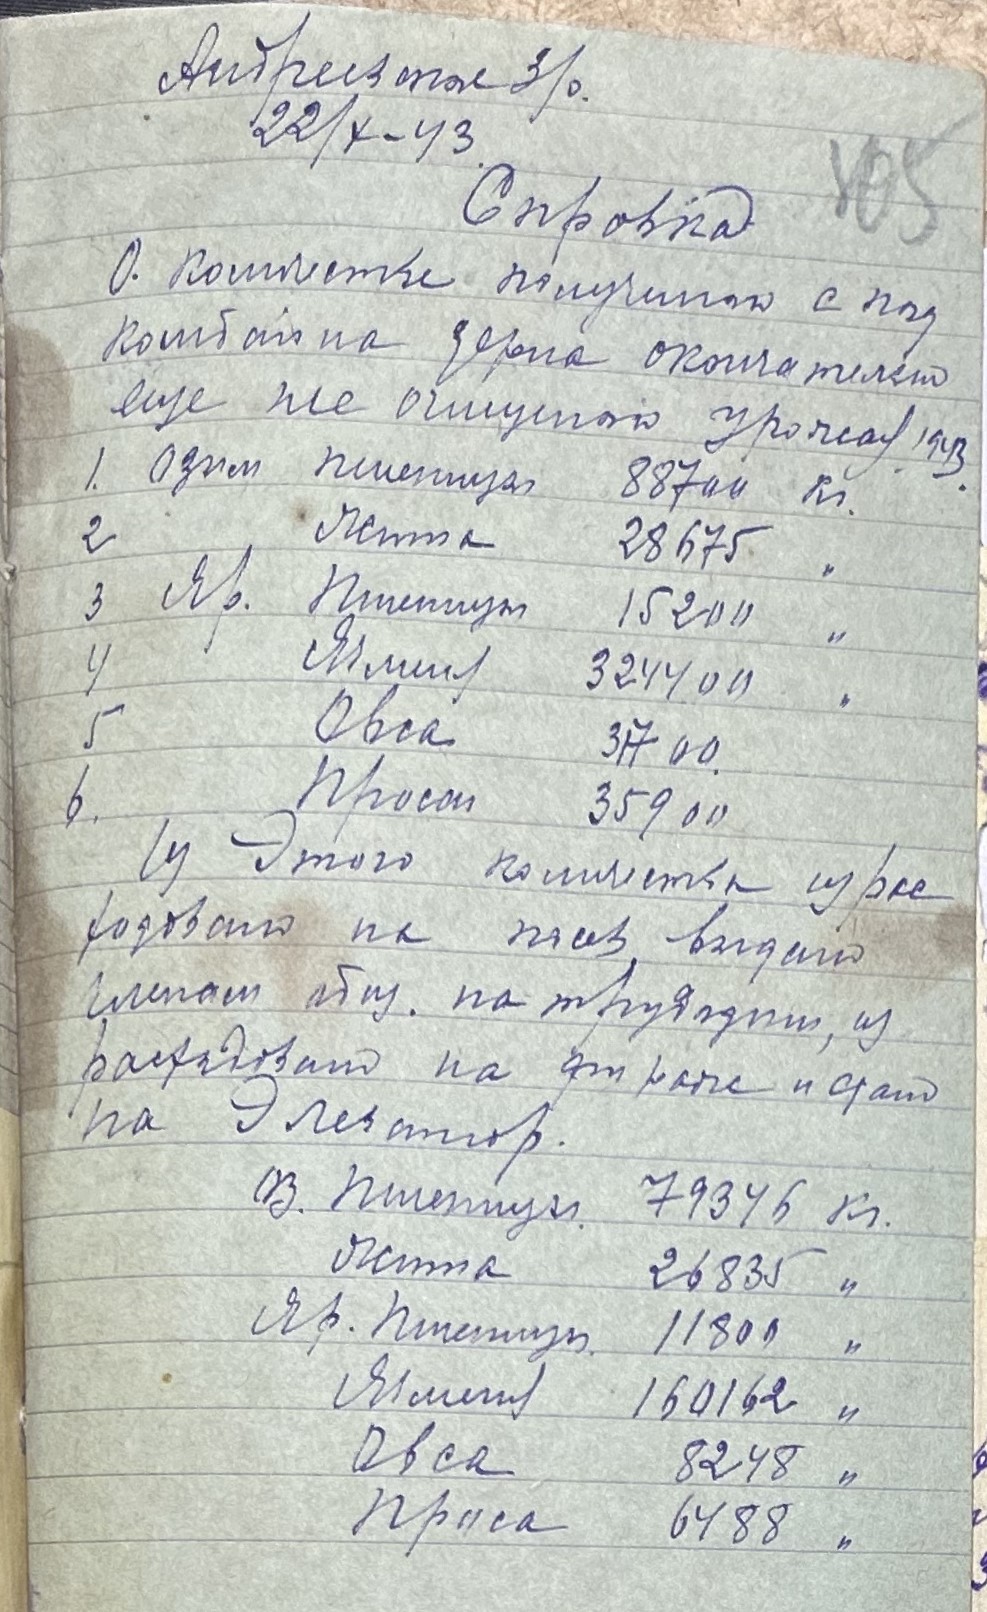 22/X-43
105
Справка
О. количестве полученого с под
комбайна зерна окончательно
еще не очищеного урожая 1943
1. Озим пшеницы 88700 кг.
2 Жита 28675 "
3 Яр. Пшеницы 15200 "
4 Ячменя 324400 "
5 Овса 00.
6. Просы 35900
Из Этого количества израс
ходовано на посев выдано
членам общ. на трудодни, из
расходовано на фураж и сдано
на Элеватор.
Оз. Пшеницы. 79346 кг.
Жита 26835 "
Яр. Пшеницы. 11800 "
Ячменя 160162 "
Овса 8248 "
Проса 6488 "